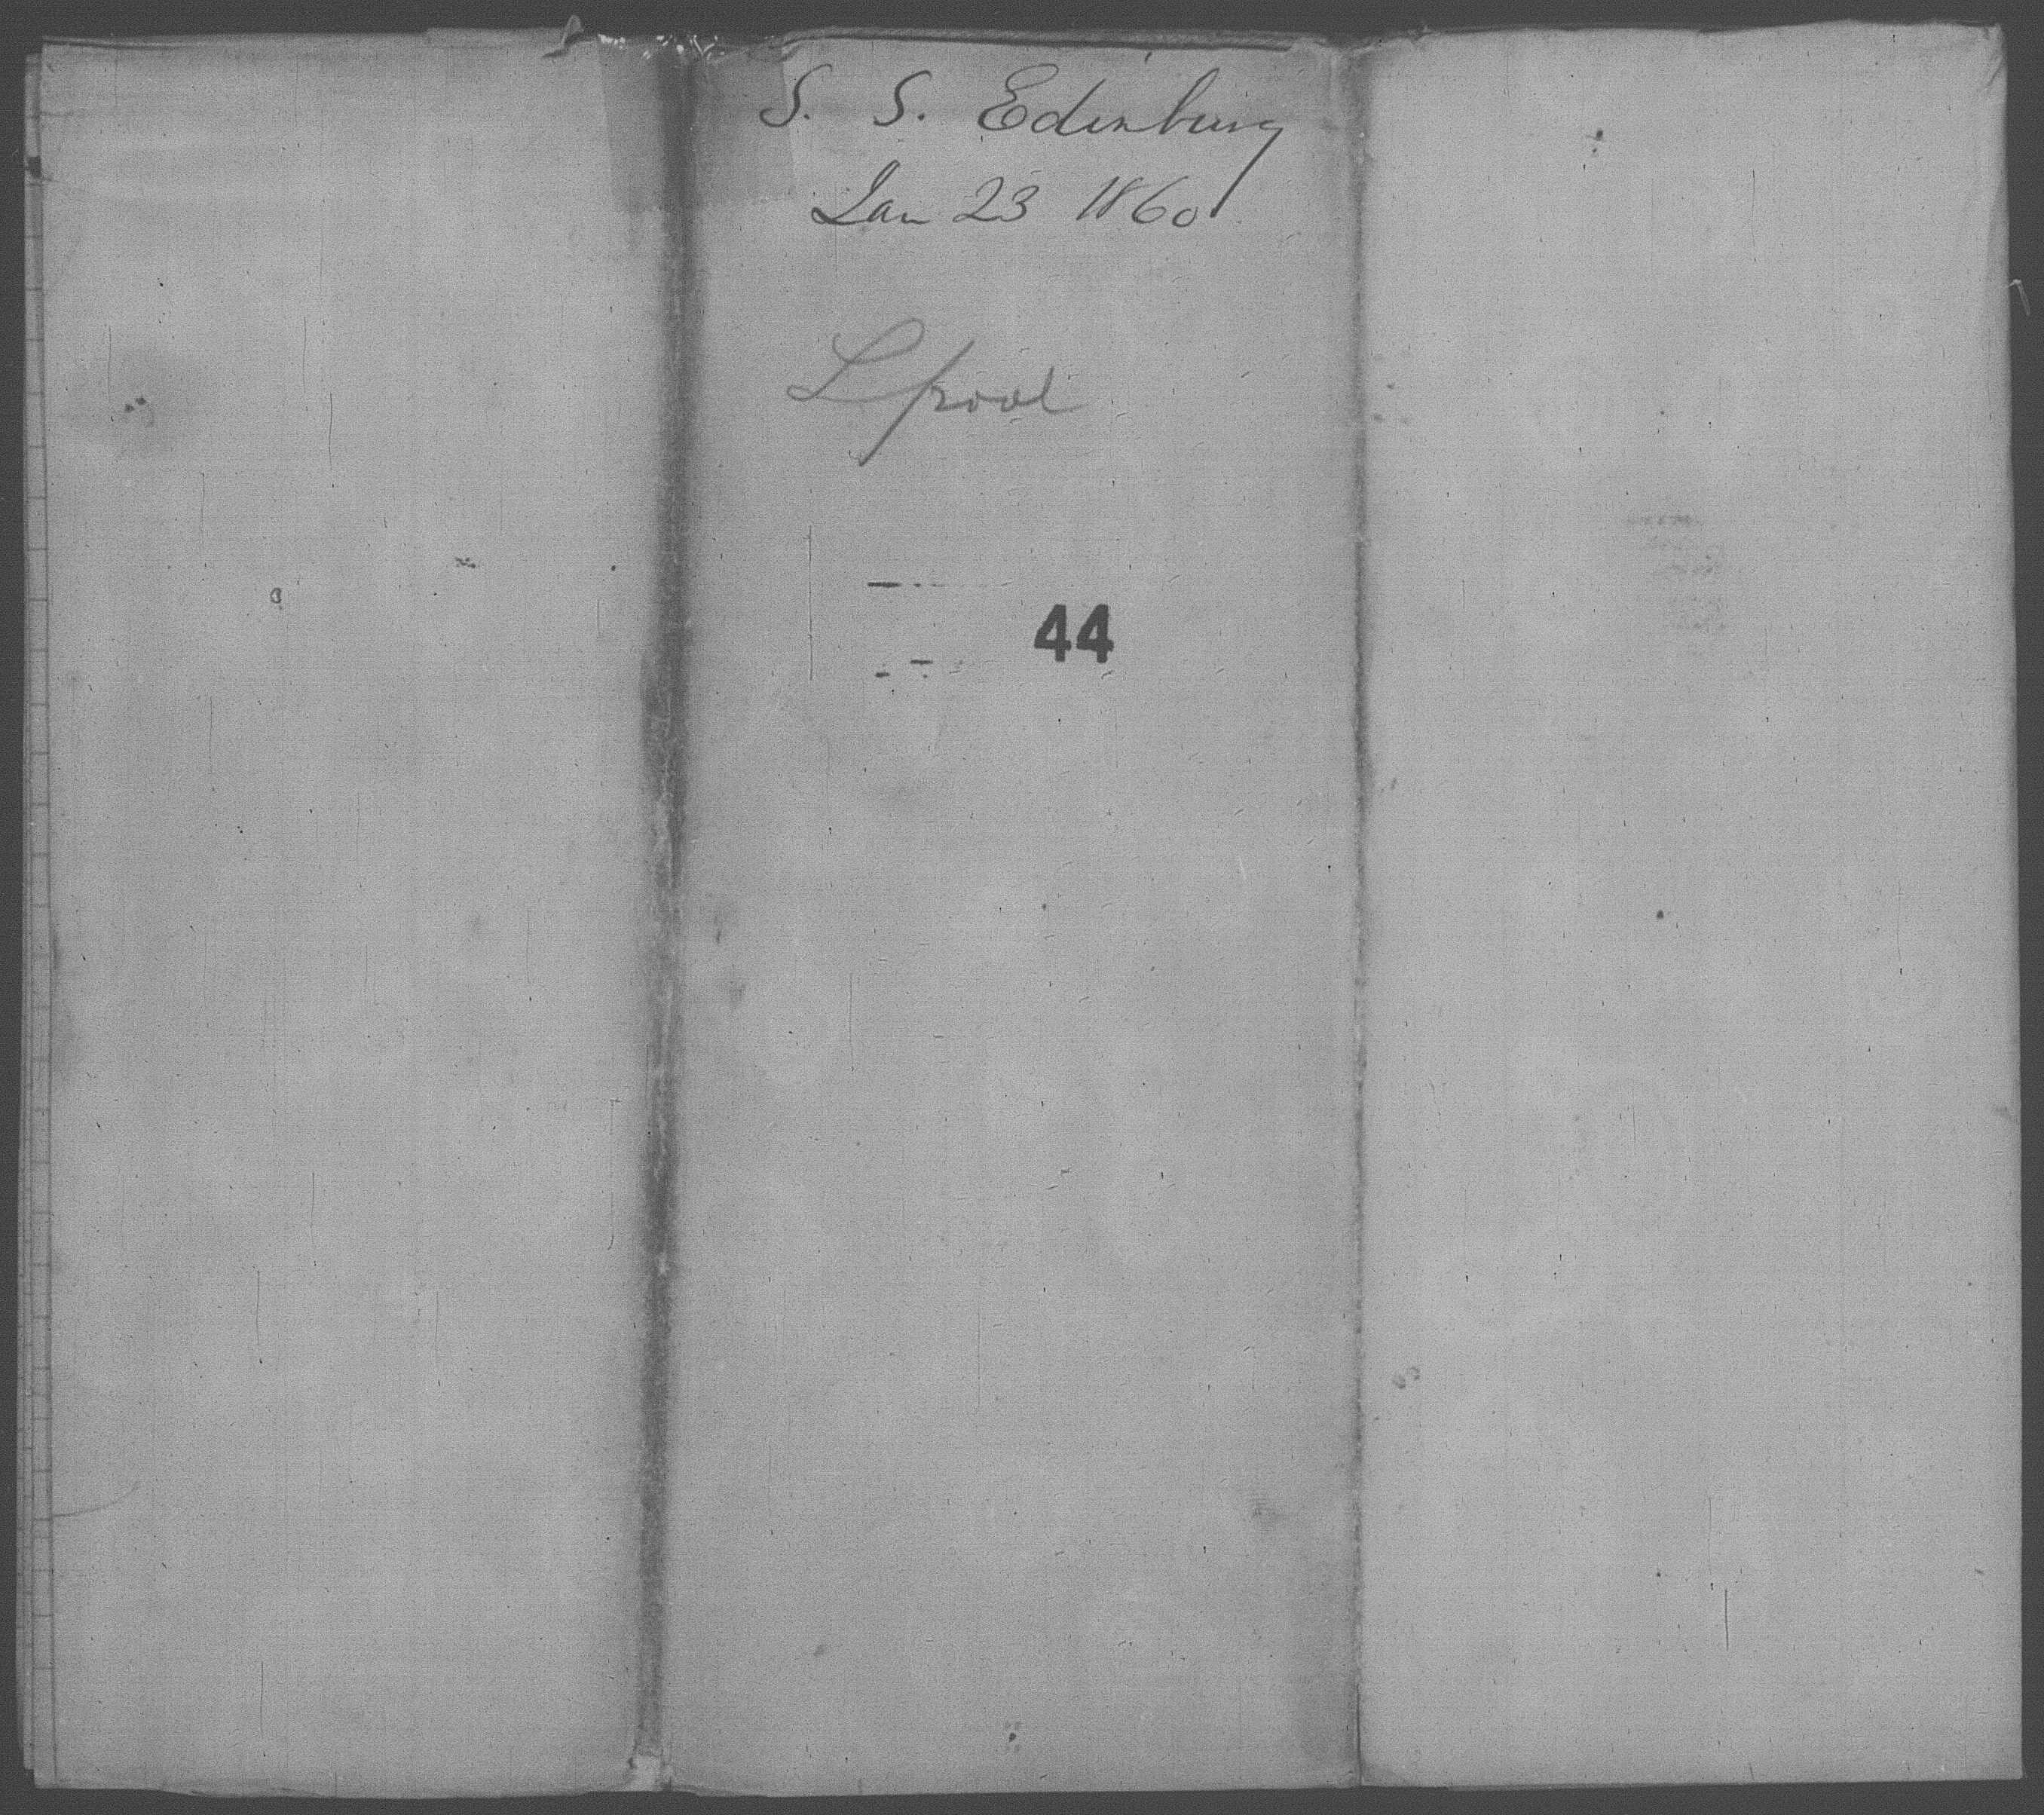 S. S. Edinburg
Jan 23 1860
Lpool
44